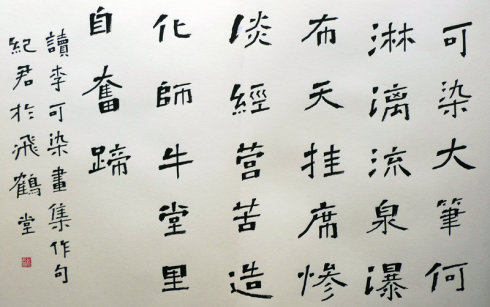 可染大筆何
淋漓流泉瀑
布天挂席慘
淡經营苦造
化師牛堂里
自奮蹄
讀李可染畫集作句
紀君於飛鶴堂